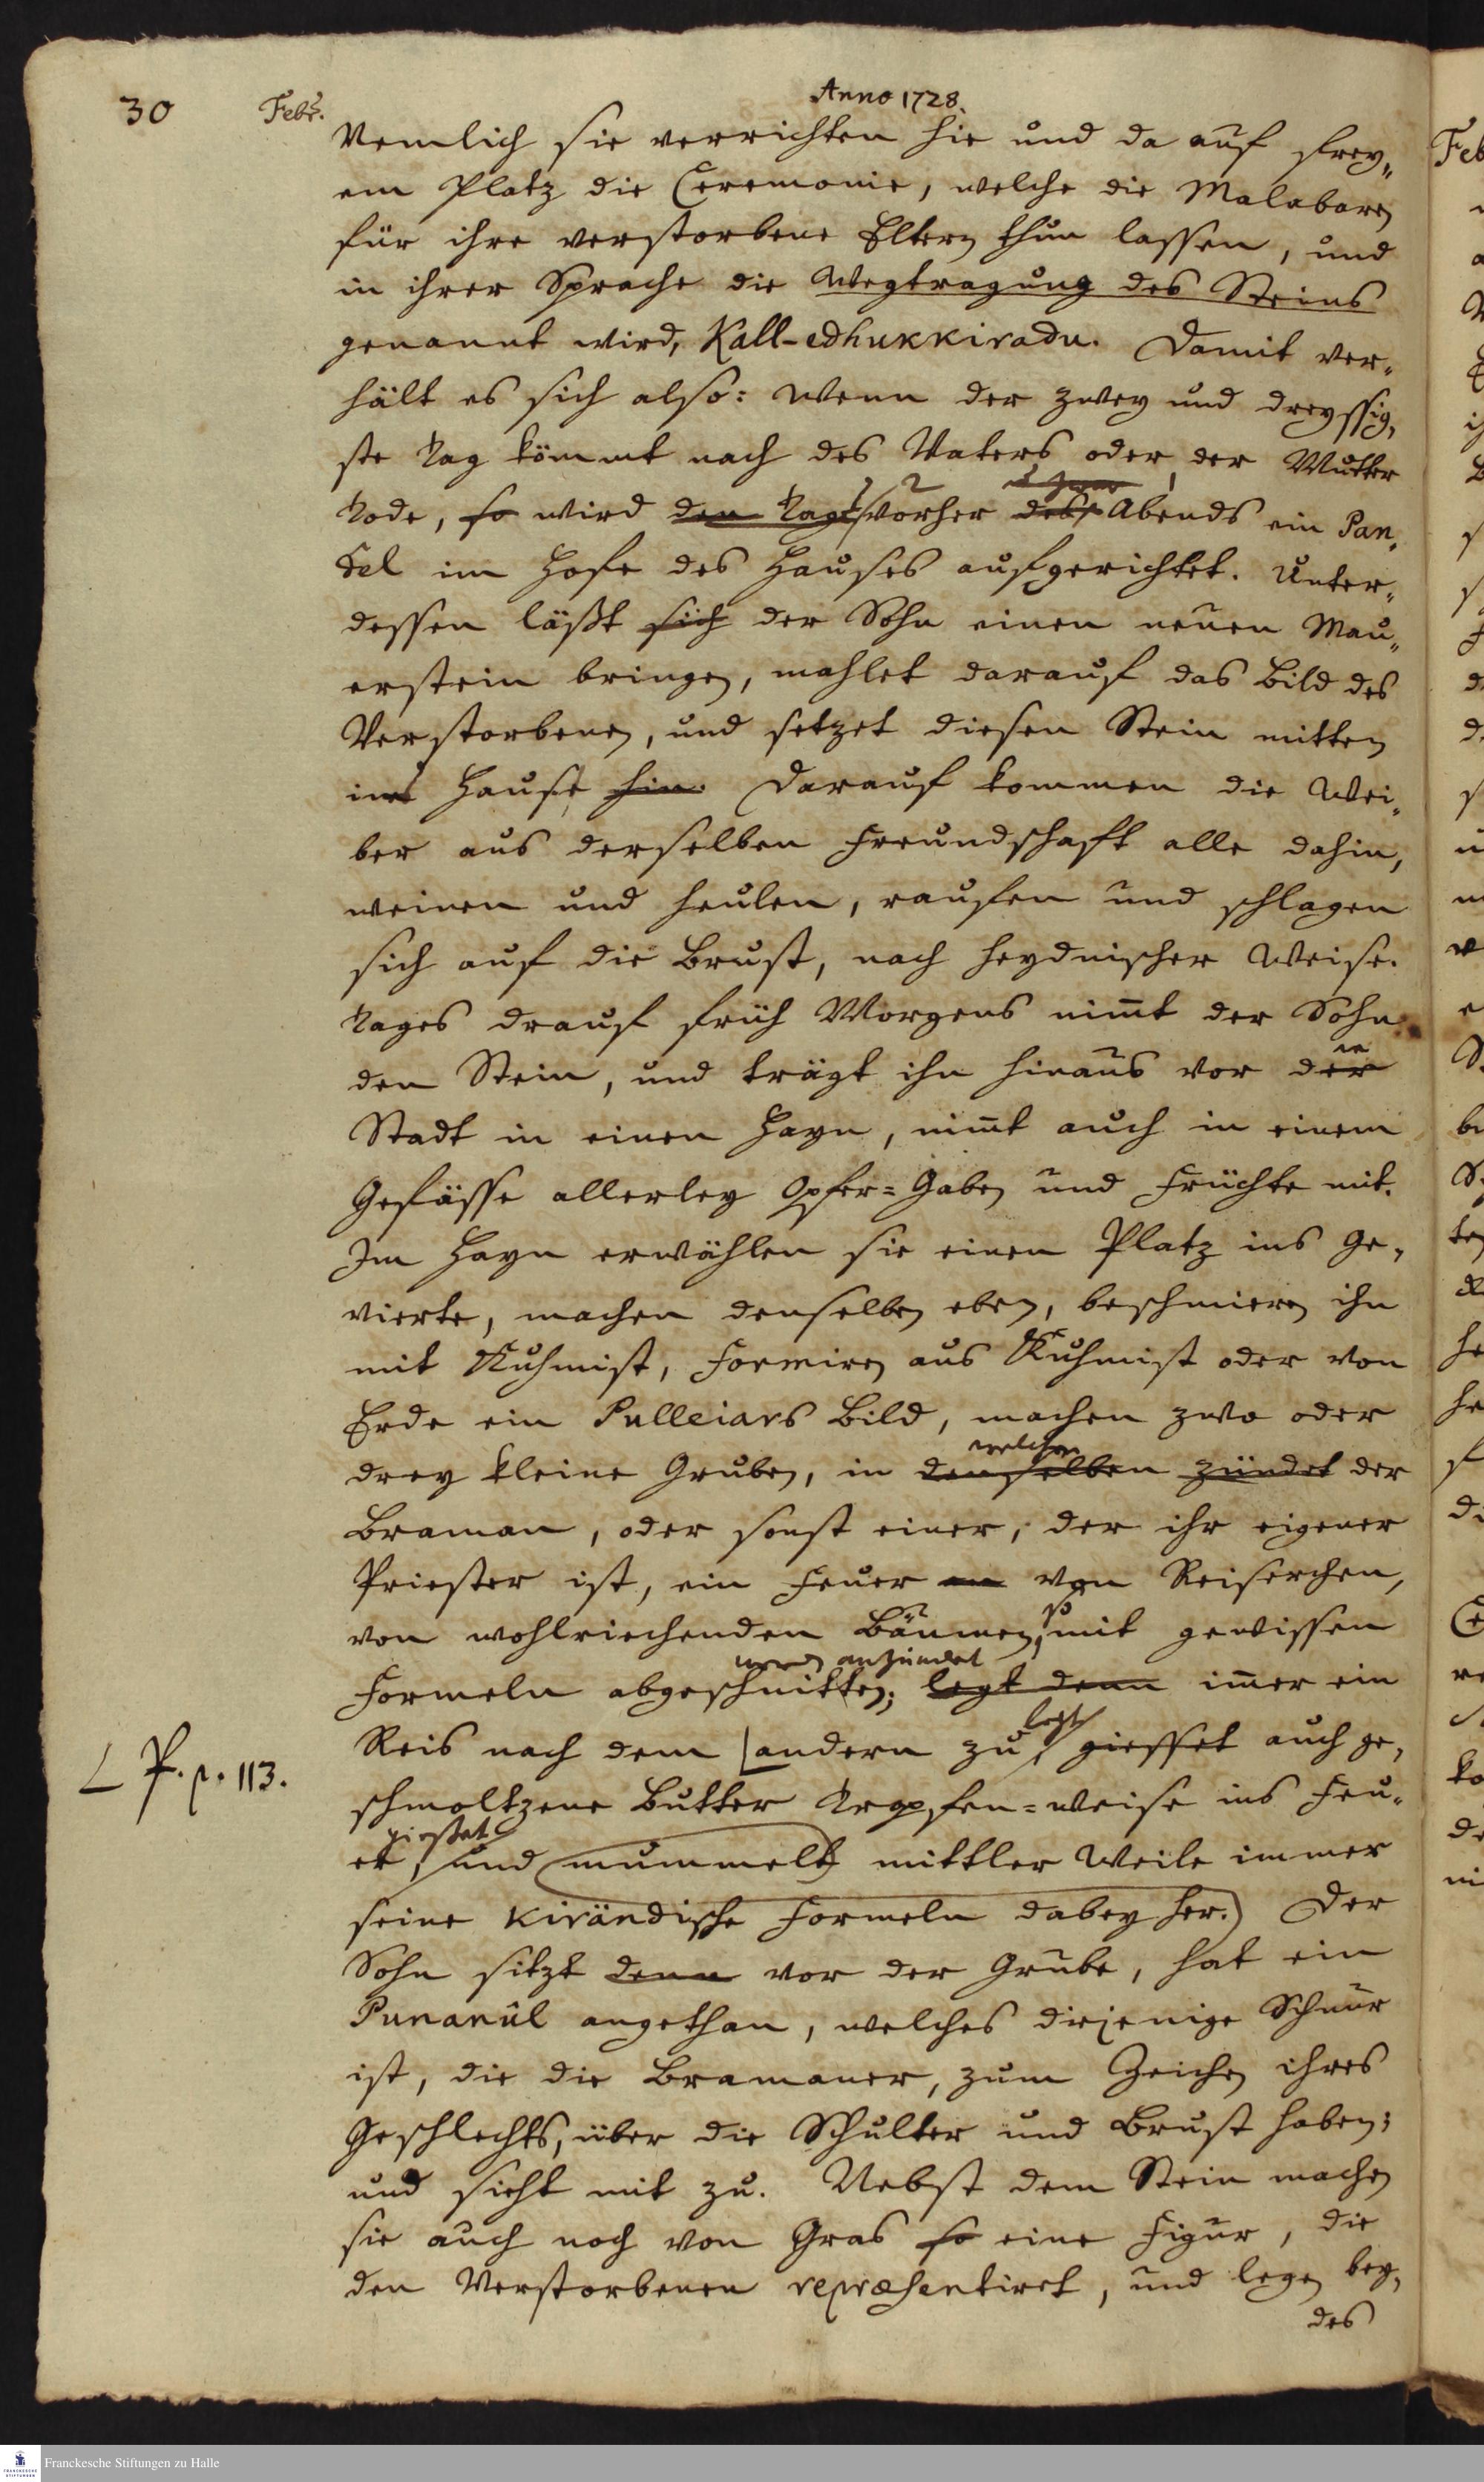 30
Febr.
Anno 1728.
Nemlich sie verrichten hie und da auf frey„
em Platz die Ceremonie, welche die Malabaren
für ihre verstorbene Eltern thun lassen, und
in ihrer Sprache die Wegtragung des Steins
genannt wird, Kall-edhukkiradu. Damit ver„
hält es sich also: Wenn der zwey und dreyssig„
ste Tag kömmt nach des Vaters oder der Mutter
Tode, so wird den Tag vorher des Abends ein Pan„
del im Hofe des Hauses aufgerichtet. Unter„
dessen läßt sich der Sohn einen neuen Mau„
erstein bringen, mahlet darauf das Bild des
Verstorbenen, und setzet diesen Stein mitten
ins Hause hin. Darauf kommen die Wei„
ber aus derselben Freundschaft alle dahin,
weinen und heulen, raufen und schlagen
sich auf die Brust, nach heydnischer Weise.
Tages drauf früh Morgens nim̅t der Sohn
den Stein, und trägt ihn hinaus vor der
Stadt in einen Hayn, nim̅t auch in einem
Gefässe allerley Opfer=Gaben und Früchte mit.
Im Hayn erwählen sie einen Platz ins Ge„
vierte, machen denselben eben, beschmieren ihn
mit Kuhmist, formiren aus Kuhmist oder von
Erde ein Pulleiars Bild, machen zwo oder
welchen
drey kleine Gruben, in denselben zündet der
Braman, oder sonst einer, der ihr eigener
Priester ist, ein Feuer an von Reiserchen,
so
von wohlriechenden Bäumen, mit gewissen
anzündet
Formeln abgeschnitten; legt denn im̅er ein
legt
Reis nach dem andern zu, giesset auch ge„
L P. p. 113.
schmoltzene Butter Tropfen=weise ins Feu„
giesset
er, und mummelt mittler Weile immer
seine Kirändische Formeln dabey her. Der
Sohn sitzt denn vor der Grube, hat ein
Punanûl angethan, welches diejenige Schnur
ist, die die Bramaner, zum Zeichen ihres
Geschlechts, über die Schulter und Brust haben;
und sieht mit zu. Nebst dem Stein machen
sie auch noch von Gras so eine Figur, die
den Verstorbenen repræsentiret, und legen bey„
des
Franckesche Stiftungen zu Halle